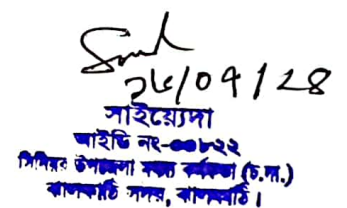 ২৫/০৭/২৪
সাইয়েদা
আইডি নং-০০৮২২
সিনিয়র উপজেলা মৎস্য কর্মকর্তা (চ.দা.)
ঝালকাঠি সদর, ঝালকাঠি।